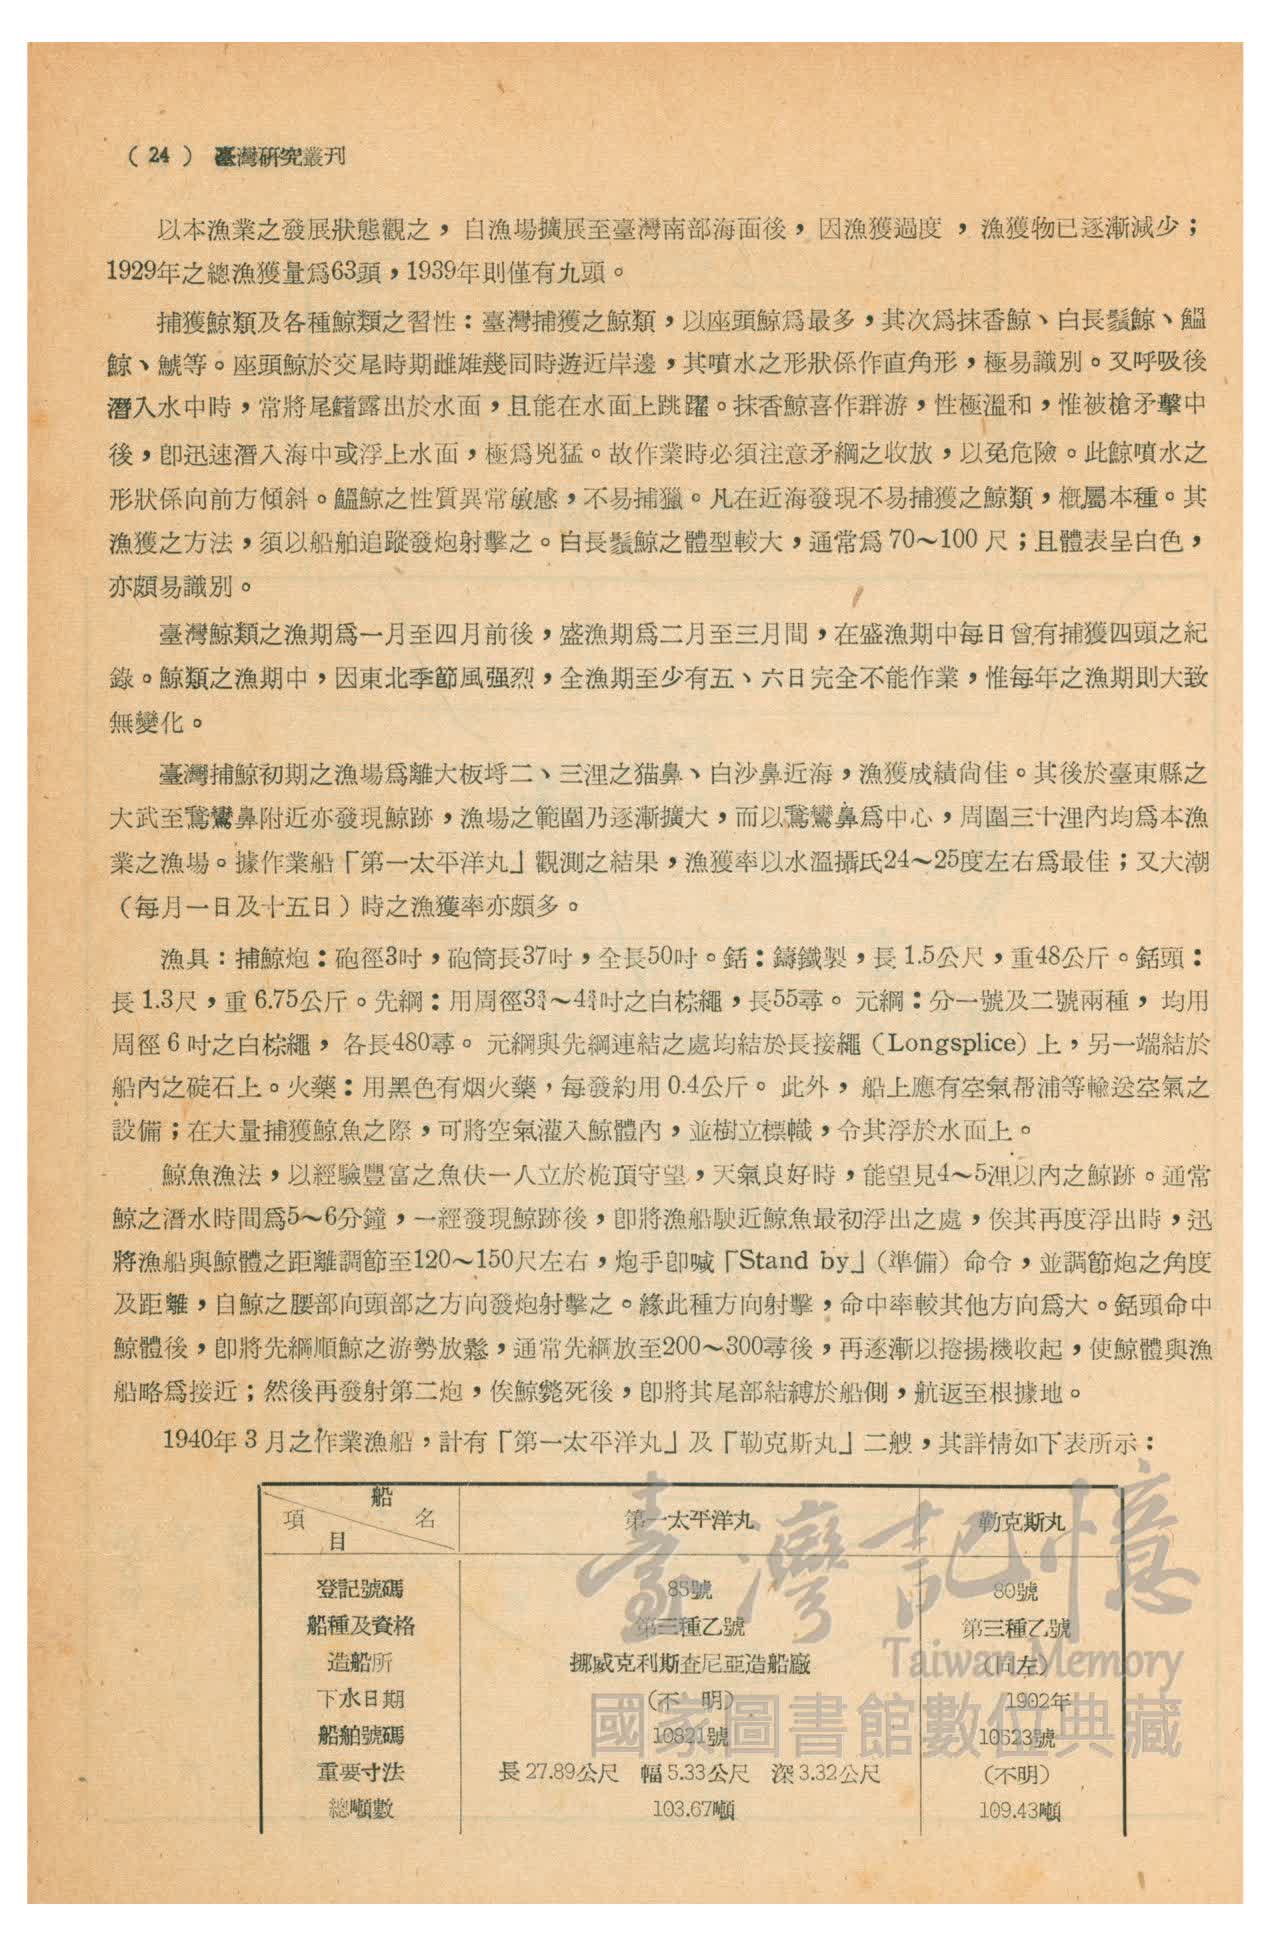 （24） 臺灣研究叢刊
以本漁業之發展狀態觀之，自漁場擴展至臺灣南部海面後，因漁獲過度，漁獲物已逐漸減少；
1929年之總漁獲量爲63頭，1939年則僅有九頭。
捕獲鯨類及各種鯨類之習性：臺灣捕獲之鯨類，以座頭鯨爲最多，其次爲抹香鯨、白長鬚鯨、鰮
鯨、鯱等。座頭鯨於交尾時期雌雄幾同時遊近岸邊，其噴水之形狀係作直角形，極易識別。又呼吸後
潛入水中時，常將尾鰭露出於水面，且能在水面上跳躍。抹香鯨喜作群游，性極溫和，惟被槍矛擊中
後，卽迅速潛入海中或浮上水面，極爲兇猛。故作業時必須注意矛綱之收放，以免危險。此鯨噴水之
形狀係向前方傾斜。鰮鯨之性質異常敏感，不易捕獵。凡在近海發現不易捕獲之鯨類，槪屬本種。其
漁獲之方法，須以船舶追蹤發炮射擊之。白長鬚鯨之體型較大，通常爲70～100尺；且體表呈白色，
亦頗易識別。
臺灣鯨類之漁期爲一月至四月前後，盛漁期爲二月至三月間，在盛漁期中每日曾有捕獲四頭之紀
錄。鯨類之漁期中，因東北季節風强烈，全漁期至少有五、六日完全不能作業，惟每年之漁期則大致
無變化。
臺灣捕鯨初期之漁場爲離大板埓二、三浬之猫鼻、白沙鼻近海，漁獲成績尙佳。其後於臺東縣之
大武至鵞鸞鼻附近亦發現鯨跡，漁場之範圍乃逐漸擴大，而以鵞鸞鼻爲中心，周圍三十浬內均爲本漁
業之漁場。據作業船「第一太平洋丸」觀測之結果，漁獲率以水溫攝氏24～25度左右爲最佳；又大潮
（每月一日及十五日）時之漁獲率亦頗多。
漁具：捕鯨炮：砲徑3吋，砲筒長37吋，全長50吋。銛：鑄鐵製，長1.5公尺，重48公斤。銛頭：
長1.3尺，重6.75公斤。先綱：用周徑 之白棕繩，長55尋。元綱：分一號及二號兩種，均用
周徑6吋之白棕繩，各長480尋。元綱與先綱連結之處均結於長接繩（Longsplice）上，另一端結於
船內之碇石上。火藥：用黑色有烟火藥，每發約用0.4公斤。此外，船上應有空氣帮浦等輸送空氣之
設備；在大量捕獲鯨魚之際，可將空氣灌入鯨體內，並樹立標幟，令其浮於水面上。
鯨魚漁法，以經驗豐富之魚伕一人立於桅頂守望，天氣良好時，能望見4～5浬以內之鯨跡。通常
鯨之潛水時間爲5～6分鐘，一經發現鯨跡後，卽將漁船駛近鯨魚最初浮出之處，俟其再度浮出時，迅
將漁船與鯨體之距離調節至120～150尺左右，炮手卽喊「Stand by」（準備）命令，並調節炮之角度
及距離，自鯨之腰部向頭部之方向發炮射擊之。緣此種方向射擊，命中率較其他方向爲大。銛頭命中
鯨體後，卽將先綱順鯨之游勢放鬆，通常先綱放至200～300尋後，再逐漸以捲揚機收起，使鯨體與漁
船略爲接近；然後再發射第二炮，俟鯨斃死後，卽將其尾部結縛於船側，航返至根據地。
1940年3月之作業漁船，計有「第一太平洋丸」及「勒克斯丸」二艘，其詳情如下表所示：
項目 船名 第一太平洋丸 勒克斯丸
登記號碼 85號 80號
船種及資格 第三種乙號 第三種乙號
造船所 挪威克利斯查尼亞造船廠 （同左）
下水日期 （不明） 1902年
船舶號碼 10821號 10523號
重要寸法 長27.89公尺 幅5.33公尺 深3.32公尺 （不明）
總噸數 103.67噸 109.43噸
臺灣記憶
Taiwan Memory
國家圖書館數位典藏